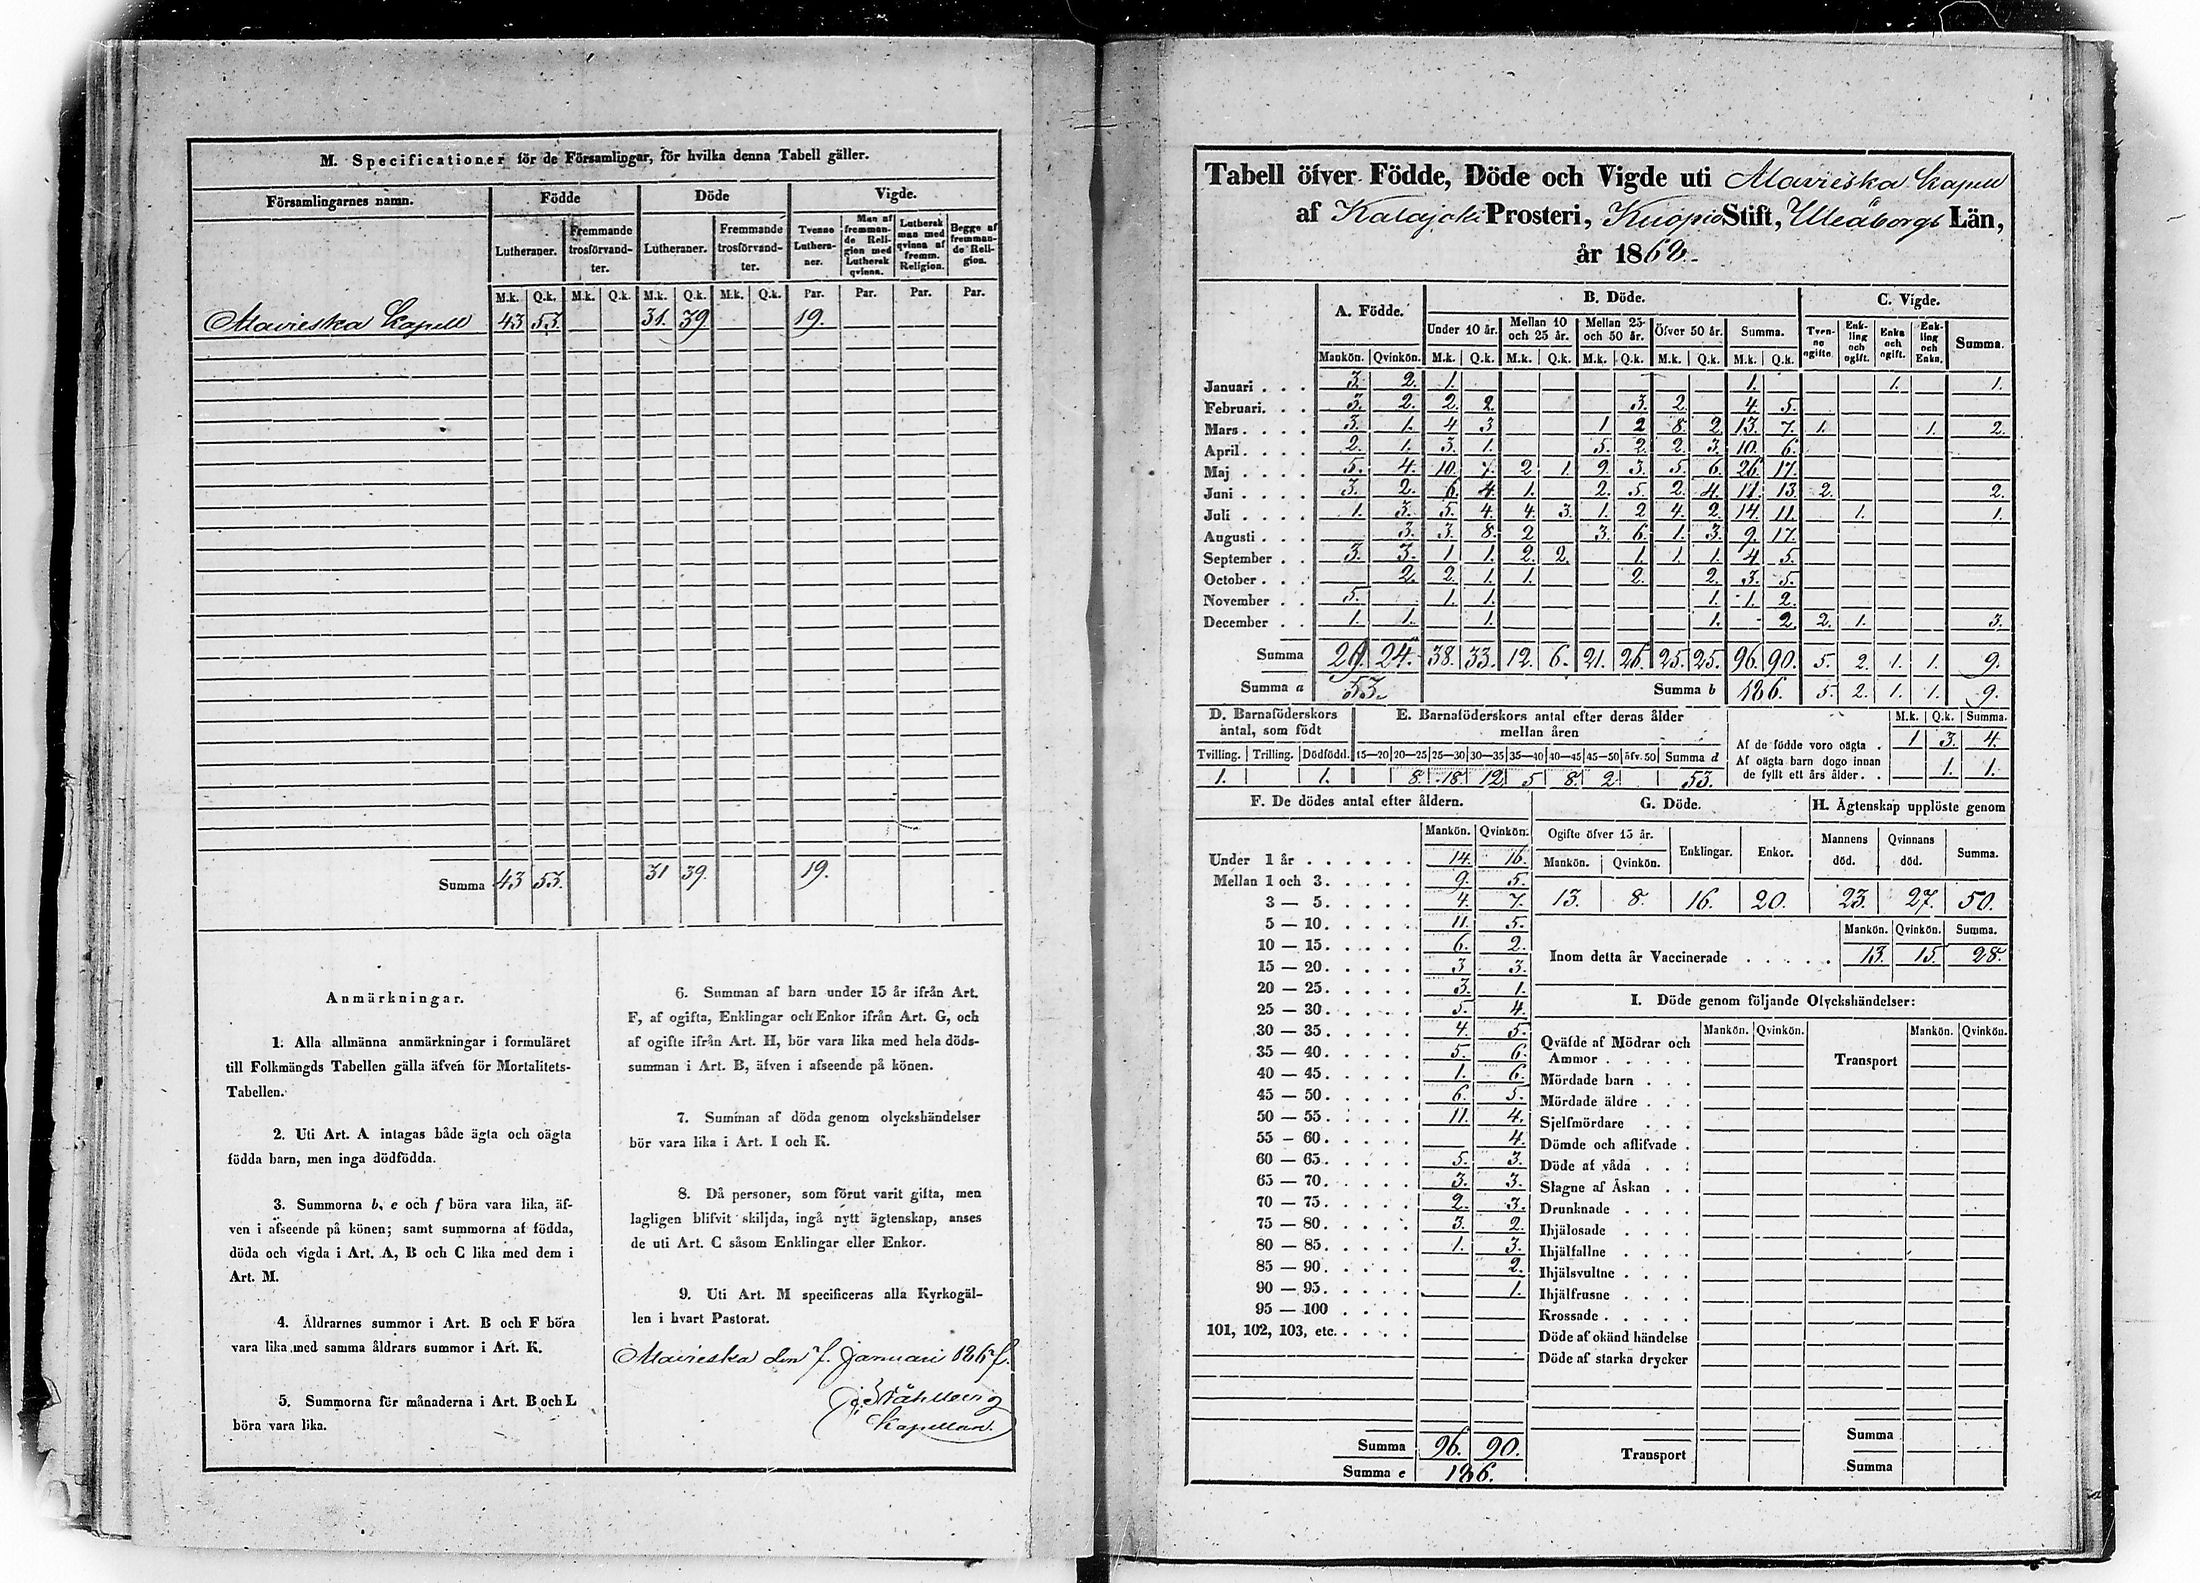 M. Specificationer för de Församlingar, för hvilka denna Tabell gäller.
Församlingarnes namn. Födde Döde Vigde.
Lutheraner. Fremmande trosförvandter. Lutheraner. Fremmande trosförvandter. Tvenne Lutheraner. Man af fremmande Religion med Luthersk qvinna. Luthersk man med qvinna af fremm. Religion. Begge af fremmande Religion.
M.k. Q.k. M.k. Q.k. M.k. Q.k. M.k. Q.k. Par. Par. Par. Par.
Mavieska Kapell 43 53. 31. 39. 19.
Summa 43 53. 31 39. 19.
Anmärkningar.
1. Alla allmänna anmärkningar i formuläret
till Folkmängds Tabellen gälla äfven för Mortalitets-
Tabellen.
2. Uti Art. A intagas både ägta och oägta
födda barn, men inga dödfödda.
3. Summorna b, e och f böra vara lika, äf-
ven i afseende på könen; samt summorna af födda,
döda och vigda i Art. A, B och C lika med dem i
Art. M.
4. Åldrarnes summor i Art. B och F böra
vara lika med samma åldrars summor i Art. K.
5. Summorna för månaderna i Art. B och L
böra vara lika.
6. Summan af barn under 15 år ifrån Art.
F, af ogifta, Enklingar och Enkor ifrån Art. G, och
af ogifte ifrån Art. H, bör vara lika med hela döds-
summan i Art. B, äfven i afseende på könen.
7. Summan af döda genom olyckshändelser
bör vara lika i Art. I och K.
8. Då personer, som förut varit gifta, men
lagligen blifvit skiljda, ingå nytt ägtenskap, anses
de uti Art. C såsom Enklingar eller Enkor.
9. Uti Art. M specificeras alla Kyrkogäl-
len i hvart Pastorat.
Mavieska den 7. Januari
Ståhlberg
Kapellan.
Tabell öfver Födde, Döde och Vigde uti Mavieska Kapell
af Kalajoki Prosteri, Kuopio Stift, Uleåborgs Län,
år 1868.
A. Födde. B. Döde. C. Vigde.
Under 10 år. Mellan 10 och 25 år. Mellan 25 och 50 år. Öfver 50 år. Summa. Tvenne ogifte. Enkling och ogift. Enka och ogift. Enkling och Enka. Summa.
Mankön. Qvinkön. M.k. Q.k. M.k. Q.k. M.k. Q.k. M.k. Q.k. M.k. Q.k.
Januari . . . 3. 2. 1. 1. 1. 1.
Februari. . . 3. 2. 2. 2. 3. 2. 4. 5.
Mars . . . . 3. 1. 4 3 1 2 8. 2. 13. 7. 1. 1. 2.
April . . . . 2. 1. 3. 1. 5. 2. 2. 3. 10. 6.
Maj . . . . 5. 4. 10. 7. 2 1. 9. 3. 5. 6. 26. 17.
Juni . . . . 3. 2. 6. 4. 1. 2. 5. 2. 4. 11. 13. 2. 2.
Juli . . . . 1. 3. 5. 4. 4. 3. 1. 2 4. 2. 14. 11. 1. 1.
Augusti . . . 3. 3. 8. 2 3. 6. 1. 3. 9. 17.
September . . 3. 3. 1 1. 2. 2. 1. 1. 1. 4 5.
October . . . 2. 2. 1. 1. 2. 2. 3. 5.
November . . 5. 1. 1. 1. 1. 2.
December . . 1. 1. 1. 1. - 2. 2. 1. 3.
Summa 29. 24. 38. 33. 12. 6. 21. 26. 25. 25. 96. 90. 5. 2. 1. 1. 9.
Summa a 53. Summa b 186. 5. 2. 1. 1. 9.
D. Barnaföderskors antal, som födt
Tvilling. Trilling. Dödfödd.
1. 1.
E. Barnaföderskors antal efter deras ålder mellan åren
15—20 20—25 25—30 30—35 35—40 40—45 45—50 öfv. 50 Summa d
8. 18. 12. 5 8. 2. 53.
M.k. Q.k. Summa.
Af de födde voro oägta . 1 3. 4.
Af oägta barn dogo innan de fyllt ett års ålder . . 1. 1.
F. De dödes antal efter åldern.
Mankön. Qvinkön.
Under 1 år . . . . . . 14. 16.
Mellan 1 och 3. . . . . 9. 5.
3 — 5. . . . . 4. 7.
5 — 10. . . . . 11. 5.
10 — 15. . . . . 6. 2.
15 — 20. . . . . 3 3.
20 — 25. . . . . 3. 1.
25 — 30. . . . . 5. 4.
30 — 35. . . . . 4. 5.
35 — 40. . . . . 5. 6.
40 — 45. . . . . 1. 6.
45 — 50. . . . . 6. 5.
50 — 55. . . . . 11. 4.
55 — 60. . . . . 4.
60 — 65. . . . . 5. 3.
65 — 70. . . . . 3. 3.
70 — 75. . . . . 2. 3.
75 — 80. . . . . 3. 2.
80 — 85. . . . . 1. 3.
85 — 90. . . . . 2.
90 — 95. . . . . 1.
95 — 100 . . . .
101, 102, 103, etc. . . . .
Summa 96. 90.
Summa e 186.
G. Döde.
Ogifte öfver 15 år. Enklingar. Enkor.
Mankön. Qvinkön.
13. 8. 16. 20.
H. Ägtenskap upplöste genom
Mannens död. Qvinnans död. Summa.
23. 27. 50.
Mankön. Qvinkön. Summa.
Inom detta år Vaccinerade . . . . . 13. 15. 28.
I. Döde genom följande Olyckshändelser:
Mankön. Qvinkön. Mankön. Qvinkön.
Qväfde af Mödrar och Ammor . . . . .
Transport
Mördade barn . . .
Mördade äldre . . .
Sjelfmördare . . .
Dömde och aflifvade .
Döde af våda . . .
Slagne af Åskan . .
Drunknade . . . .
Ihjälosade . . . .
Ihjälfallne . . . .
Ihjälsvultne . . . .
Ihjälfrusne . . . .
Krossade . . . . .
Döde af okänd händelse
Döde af starka drycker
Transport
Summa
Summa